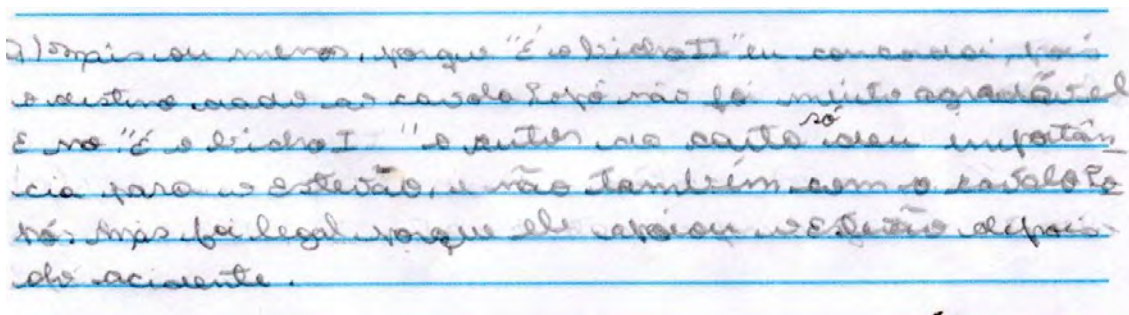 a) Mais ou menos, porque "É o bicho II" eu concordei, pois
o destino dado ao cavalo Popó não foi muito agradável
E no "É o bicho I" o autor da carta só deu importân
cia para o Estevão, e não também com o cavalo Po
pó. Mas foi legal porque ele apoiou o Estevão depois
do acidente.